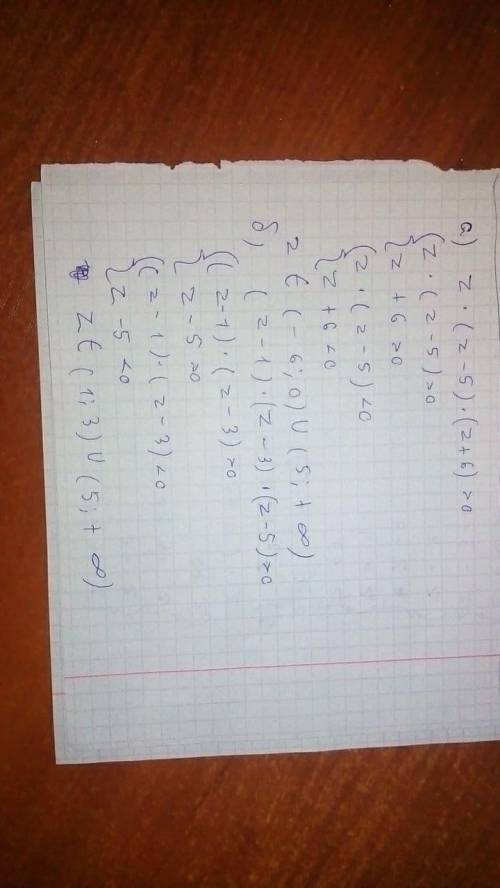 а) z · (z-5)·(z+6) >0
{z · (z-5) >0
z +6 >0
{z · (z-5) <0
z +6 <0
z ∈ (-6; 0) ∪ (5; + ∞)
б) (z-1)·(z-3)·(z-5) >0
{(z-1)·(z-3) >0
z-5 >0
{(z-1)·(z-3) <0
z-5 <0
z ∈ (1; 3) ∪ (5; + ∞)